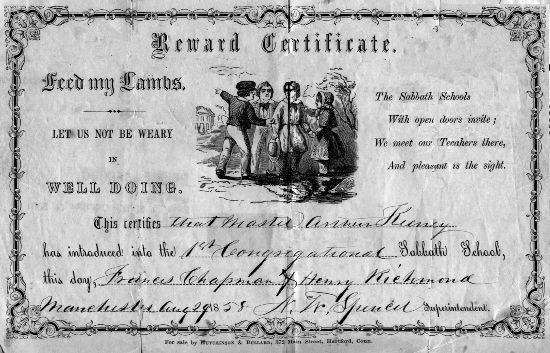 Reward Certificate.
Feed my Lambs.
LET US NOT BE WEARY
IN
WELL DOING.
The Sabbath Schools
With open doors invite;
We meet our Tecahers there,
And pleasant is the sight.
This certifies that Master Kieney
has introduced into the 1st Congregational Sabbath School,
this day, Francis Chapman & Henry Richmond
Manchester Aug 29 1858 Superintendent.
For sale by HUTCHINSON & BULLARD, 372 Main Street, Hartford, Conn.